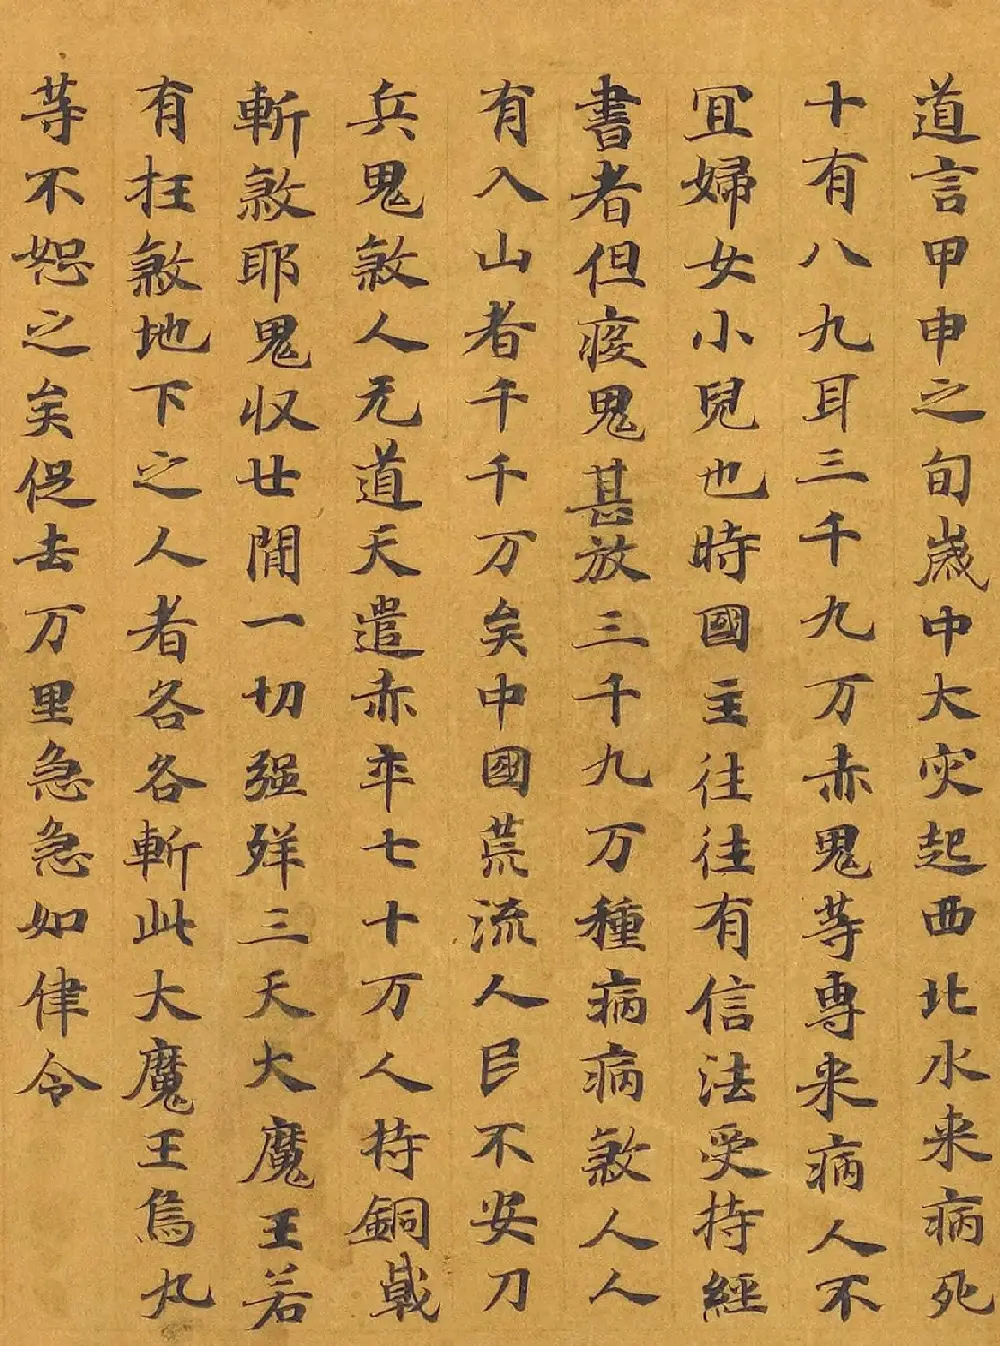 道言甲申之旬歳中大灾起西北水来病死
十有八九耳三千九万赤鬼等専来病人不
冝婦女小兒也時國主往往有信法受持經
書者但疫鬼甚放三千九万種病病煞人人
有入山者千千万矣中國荒流人民不安刀
兵鬼煞人无道天遣赤卒七十万人持銅戟
斬煞耶鬼収世間一切强殃三天大魔王若
有抂煞地下之人者各各斬此大魔王烏丸
等不恕之矣促去万里急急如律令